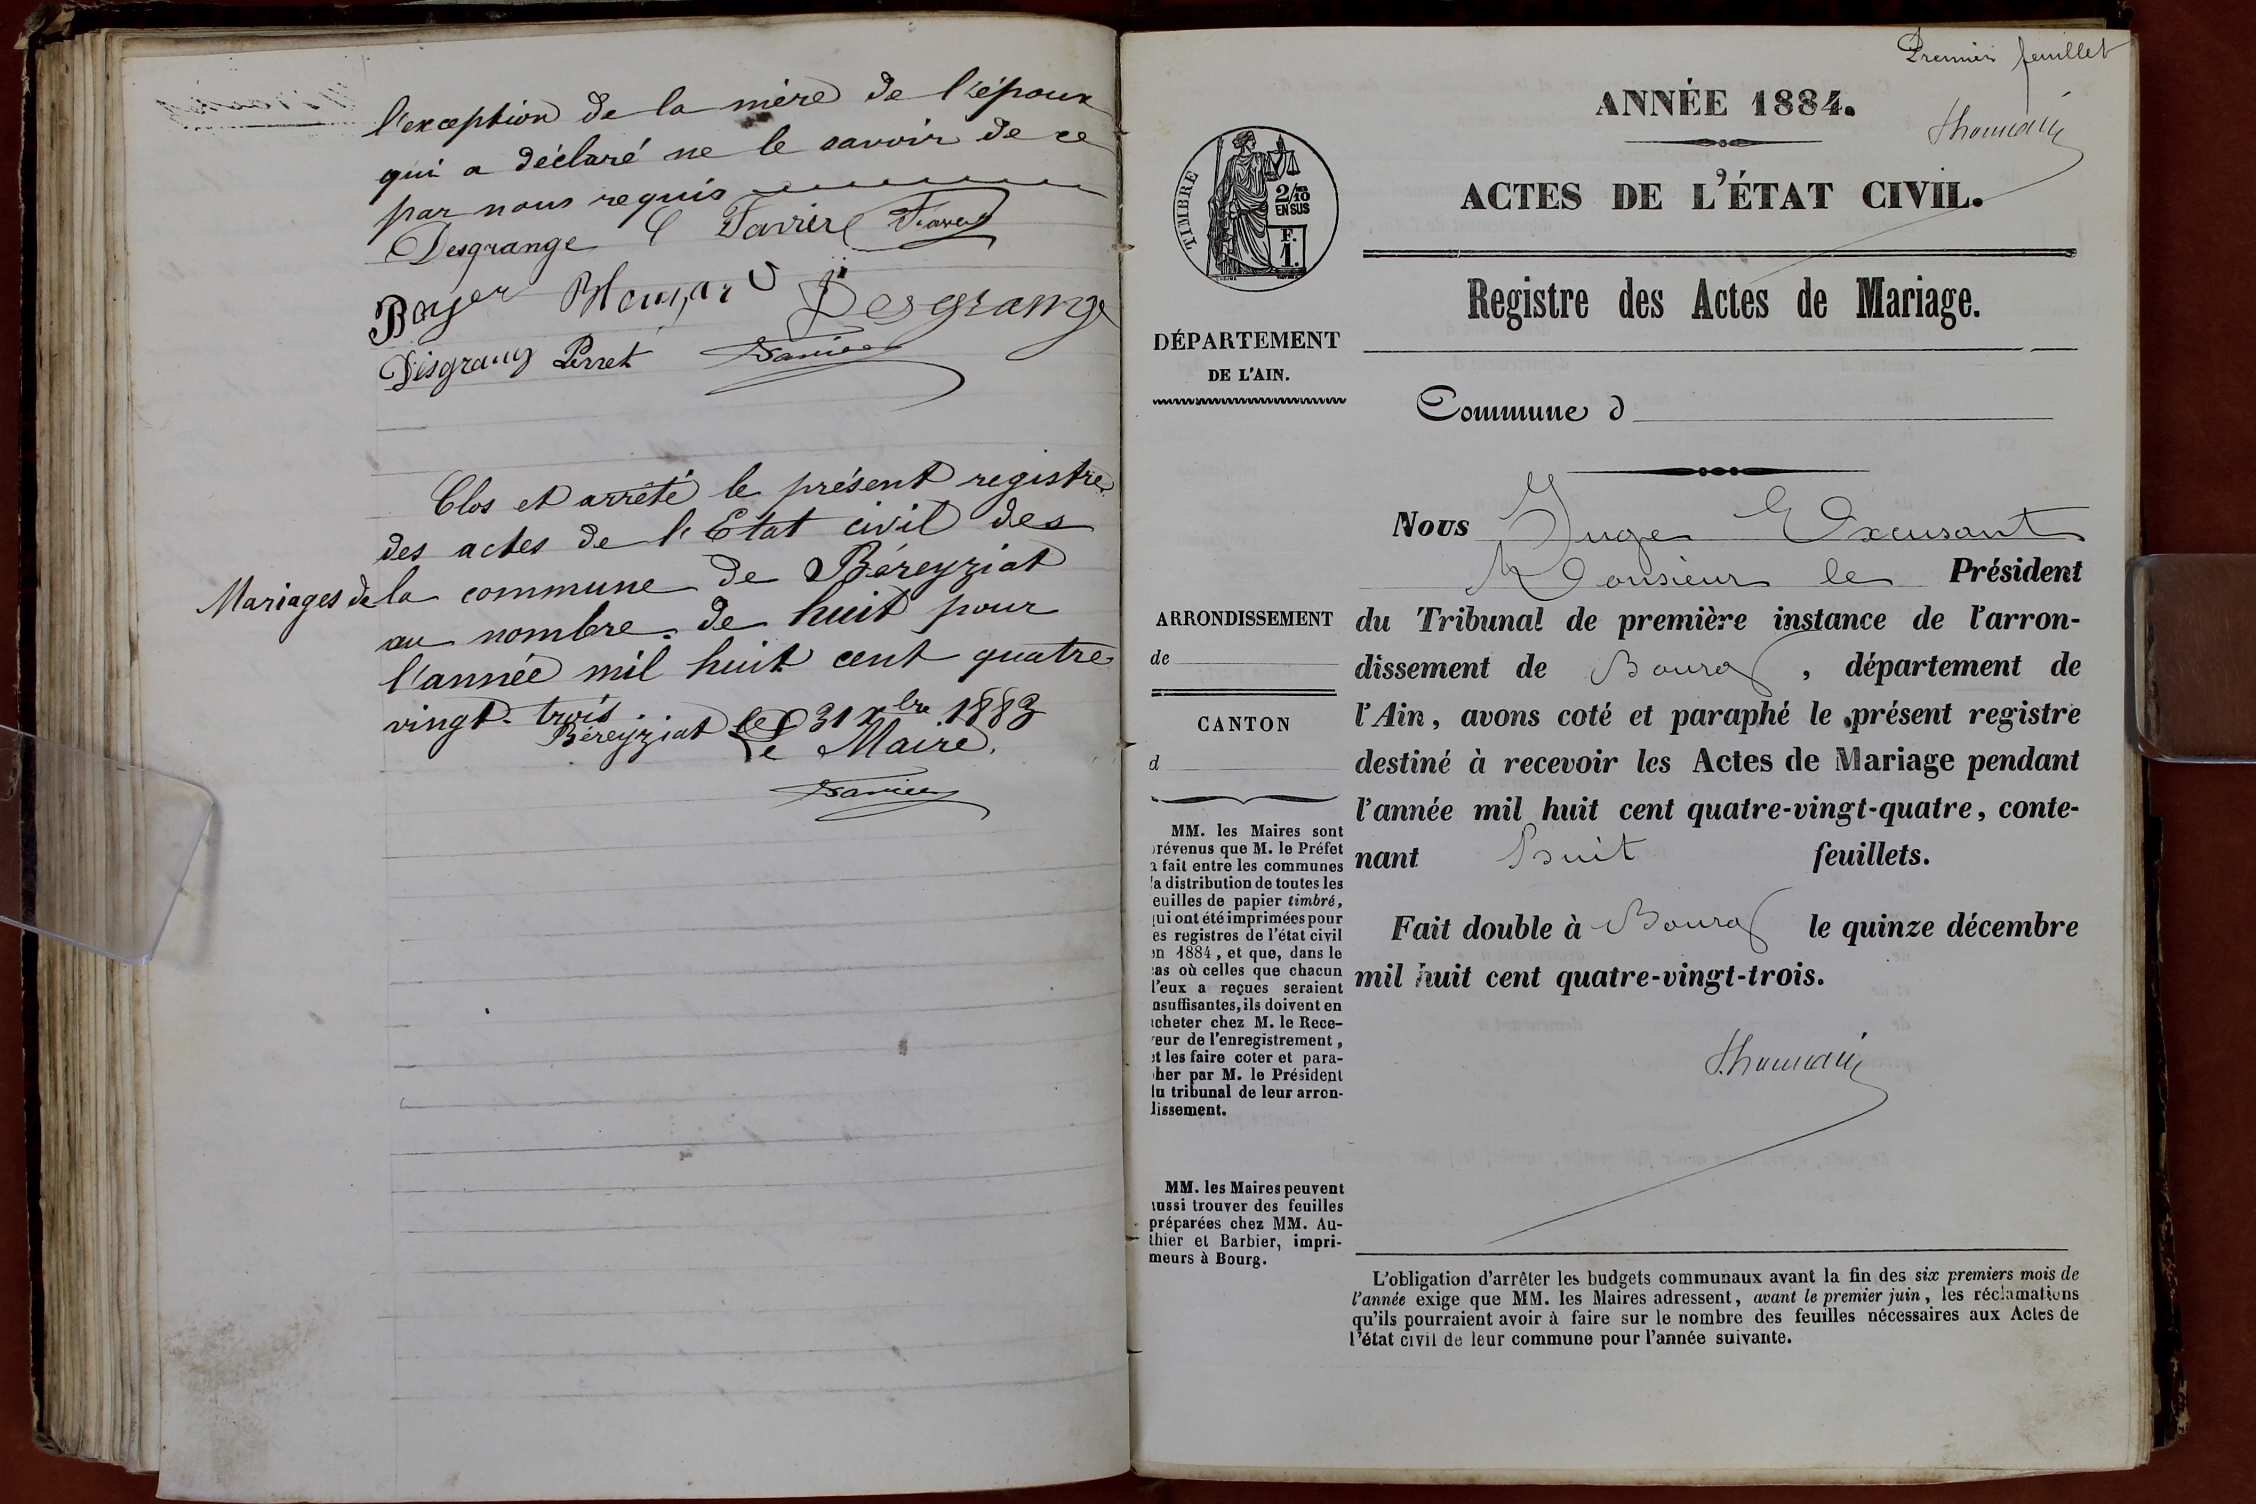 l'exception de la mère de l'époux
qui a déclaré ne le savoir de ce
par nous requis
Desgrange C Favier Favier
Boyer Desgrange
Perret
Clos et arrêté le présent registre
des actes de l'Etat civil des
Mariages de la commune de Béreyziat
au nombre de huit pour
l'année mil huit cent quatre
vingt-trois
Béreyziat le 31 xbre 1883
Le Maire,
Premier feuillet
ANNÉE 1884.
ACTES DE L'ÉTAT CIVIL.
TIMBRE
2/10
EN SUS
F.
1.
Registre des Actes de Mariage.
DÉPARTEMENT
DE L'AIN.
Commune d
Nous Juge Excusant
Monsieur le Président
ARRONDISSEMENT
de
CANTON
d
du Tribunal de première instance de l'arron-
dissement de Bourg, département de
l'Ain, avons coté et paraphé le présent registre
destiné à recevoir les Actes de Mariage pendant
l'année mil huit cent quatre-vingt-quatre, conte-
nant huit feuillets.
Fait double à Bourg le quinze décembre
mil huit cent quatre-vingt-trois.
MM. les Maires sont
révenus que M. le Préfet
a fait entre les communes
la distribution de toutes les
euilles de papier timbré,
qui ont été imprimées pour
es registres de l'état civil
en 1884, et que, dans le
cas où celles que chacun
d'eux a reçues seraient
nsuffisantes, ils doivent en
acheter chez M. le Rece-
veur de l'enregistrement,
et les faire coter et para-
pher par M. le Président
du tribunal de leur arron-
dissement.
MM. les Maires peuvent
aussi trouver des feuilles
préparées chez MM. Au-
thier et Barbier, impri-
meurs à Bourg.
L'obligation d'arrêter les budgets communaux avant la fin des six premiers mois de
l'année exige que MM. les Maires adressent, avant le premier juin, les réclamations
qu'ils pourraient avoir à faire sur le nombre des feuilles nécessaires aux Actes de
l'état civil de leur commune pour l'année suivante.